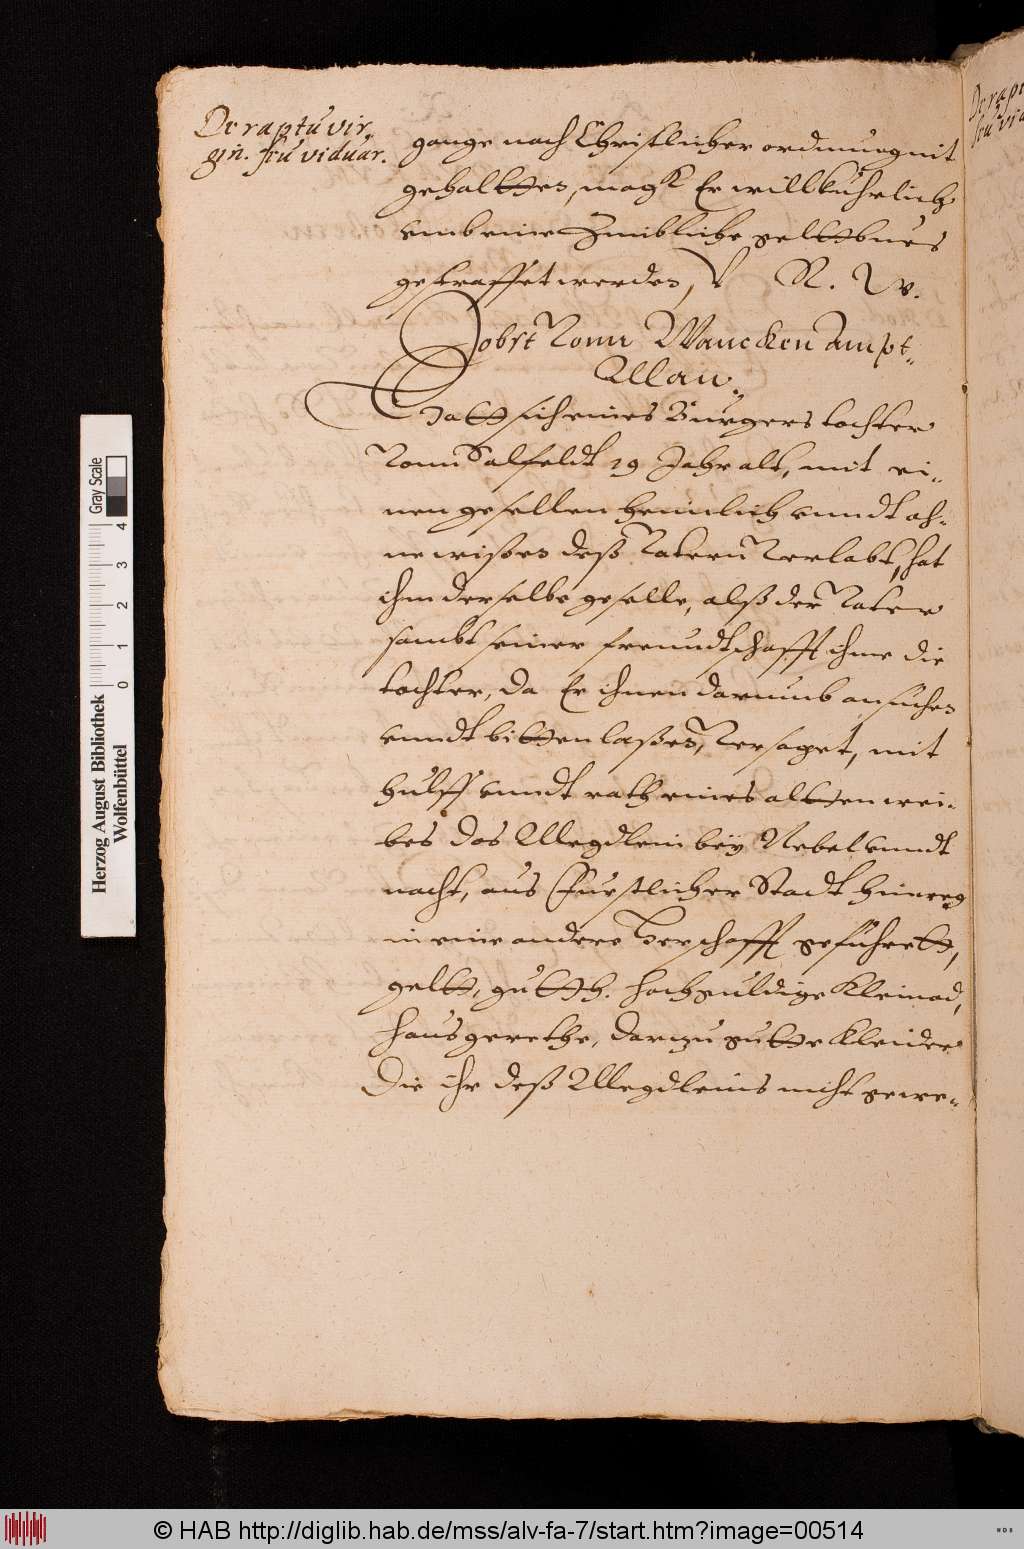 De raptu vir,
gin. seu viduar.
gange nach Christlicher ordnung nit
gehaltten, magk Er willkührlich
umb eine Zimbliche geldtbues
gestraffet werden, R. W.
Jobst Vonn Wancken Ampt-
Man.
Hatt sich eines Bürgers tochter
Vonn Salfeldt 19 Jahr alt, mit ei-
nen gesellen heimlich vnndt oh-
ne wißen deß Vatern Verlabt, hat
ihm derselbe geselle, alß der Vater
sambt seiner freundtschafft ihme die
tochter, da Er ihnen darumb ansuchen
vnndt bitten laßen, Versaget, mit
hülff vnndt rath eines altten wei-
bes das Megdlein bey Nebel vnndt
nacht, aus Fürstlicher Stadt hinweg
in eine andere Herschafft geführett,
geltt, gutth. hochguldige Kleinod,
hausgerethe, darzu gutte Kleider
Die ihr deß Megdleins nicht gewe-
De rap
seu vid
Herzog August Bibliothek
Wolfenbüttel
0 1 2 3 4
Gray Scale
© HAB http://diglib.hab.de/mss/alv-fa-7/start.htm?image=00514